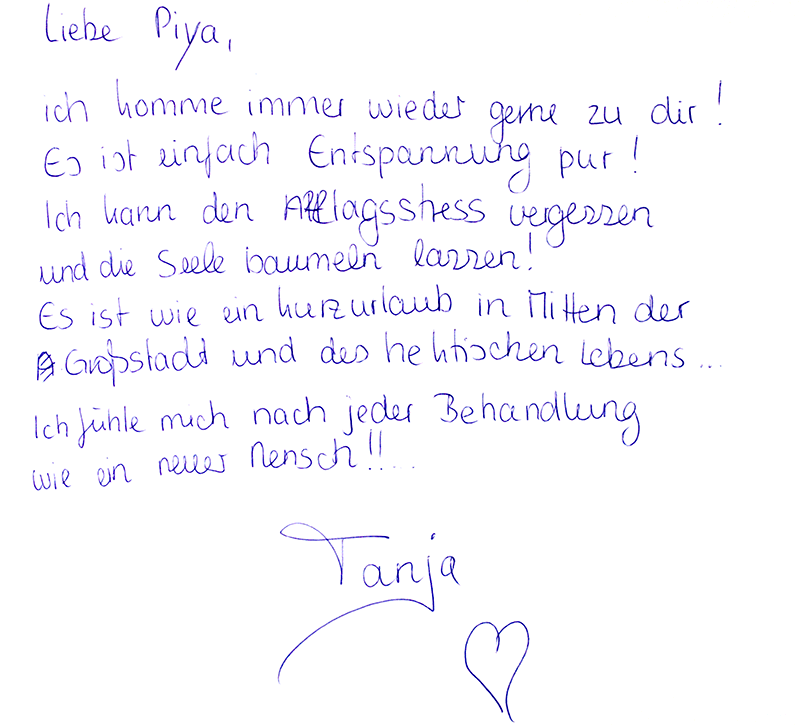 Liebe Piya,
ich komme immer wieder gerne zu dir!
Es ist einfach Entspannung pur!
Ich kann den Alltagsstress vergessen
und die Seele baumeln lassen!
Es ist wie ein Kurzurlaub in Mitten der
Großstadt und des hektischen Lebens...
Ich fühle mich nach jeder Behandlung
wie ein neuer Mensch!!...
Tanja